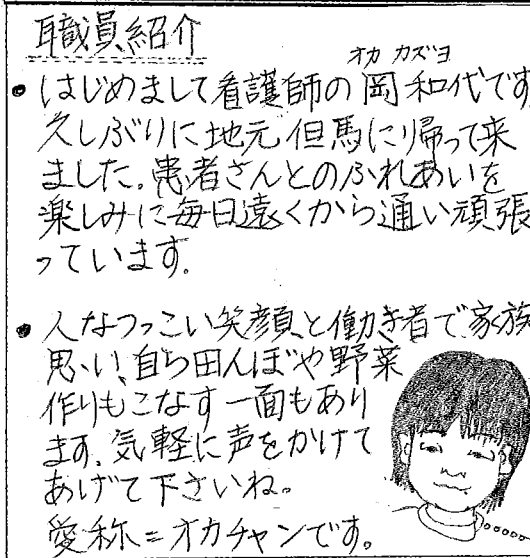 職員紹介
オカ カズヨ
• はじめまして看護師の 岡 和代です
久しぶりに地元但馬に帰って来
ました。患者さんとのふれあいを
楽しみに毎日遠くから通い頑張
っています。
• 人なつっこい笑顔と働き者で家族
思い、自ら田んぼや野菜
作りもこなす一面もあり
ます。気軽に声をかけて
あげて下さいね。
愛称=オカチャンです。